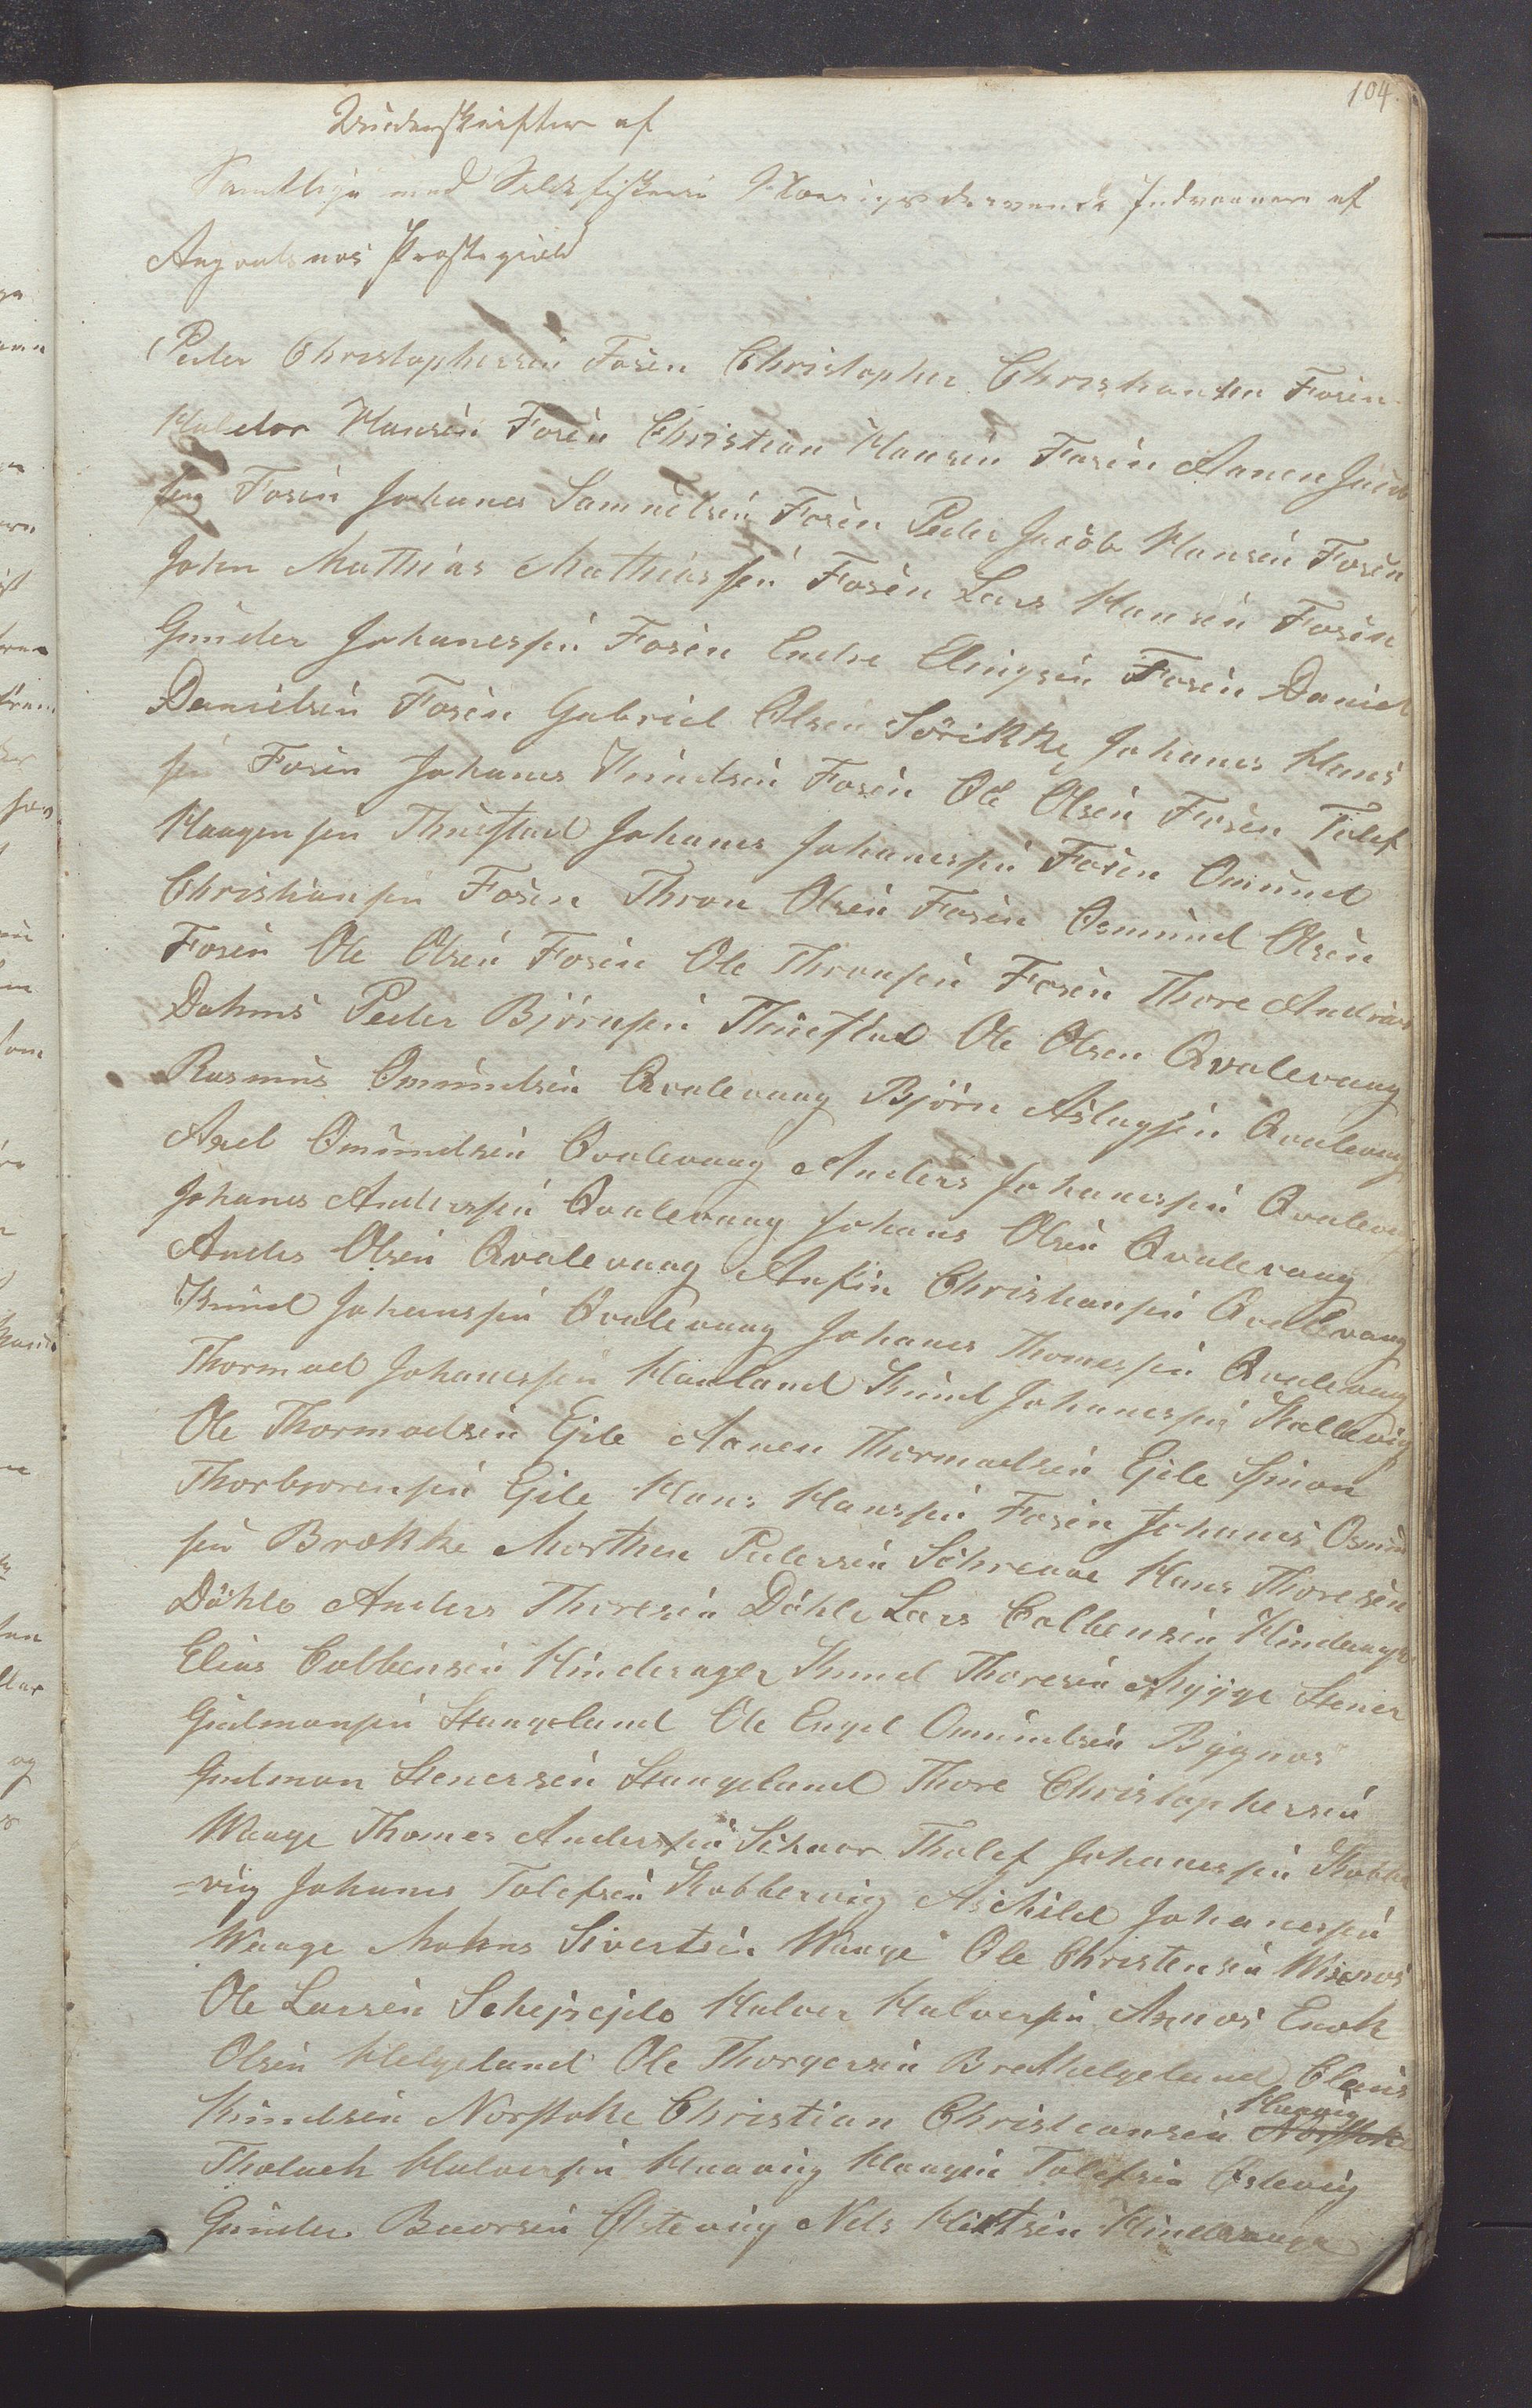 104.
Underskrifter af
Samtlige med Sildefiskerie Næringsdrevende Indvaanere af
Augvalsnæs Præstegield
Peder Christophersen Fosen Christopher Christiansen Fosen
Haldor Hansen Fosen Christian Hansen Fosen Aanen Jacob
sen Fosen Johanes Samuelsen Fosen Peder Jacob Hansen Fosen
John Mathias Mathiassen Fosen Lars Hansen Fosen
Gunder Johanessen Fosen Endre Elingsen Fosen Daniel
Danielsen Fosen Gabriel Olsen Sörikke Johanes Hans
sen Fosen Johanes Knudsen Fosen Ole Olsen Fosen Tolef
Haagensen Thuestad Johanes Johanessen Fosen Omund
Christiansen Fosen Thron Olsen Fosen Osmund Olsen
Fosen Ole Olsen Fosen Ole Thronsen Fosen Thore Andreas
Dahms Peder Björnsen Thuestad Ole Olsen Qvalevaag
Rasmus Omundsen Qvalevaag Björn Aslagsen Qvalevaag
Axel Omundsen Qvalevaag Anders Johanessen Qvalevaag
Johanes Anderssen Qvalevaag Johanes Olsen Qvalevaag
Anders Olsen Qvalevaag Anfin Christiansen Qvalevaag
Knud Johanssen Qvalevaag Johanes Thomessen Qvalevaag
Thormod Johanessen Hauland Knud Johanessen Stallevig
Ole Thormodsen Ejde Aanen Thormodsen Ejde Simon
Thorbiorensen Ejde Hans Hanssen Fosen Johanes Osmun
sen Brekke Morthen Pedersen Söhrenae Hans Thoresen
Döhle Anders Thoresen Döhle Lars Colbensen Hinderage
Elias Colbensen Hinderager Knud Thoresen Mygge Stener
Gudmonsen Stangeland Ole Engel Omundsen Bygnos
Gudmon Stenersen Stangeland Thore Christophersen
Waage Thomes Anderssen Tholef Johanessen Kobbe
=vig Johanes Tolefsen Kobbervig Aschild Johanessen
Waage Mohns Sivertsen Waage Ole Christensen Wisnes
Ole Larsen Halver Halversen Axnes Enok
Olsen Helgeland Ole Thorgersen Brekhelgeland Claus
Haavig
Knudsen Norstoke Christian Christiansen Norstoke
Tholach Halversen Haavig Haagen Tolefsen Østevig
Gunder Baarsen Østevig Nels Hinderager